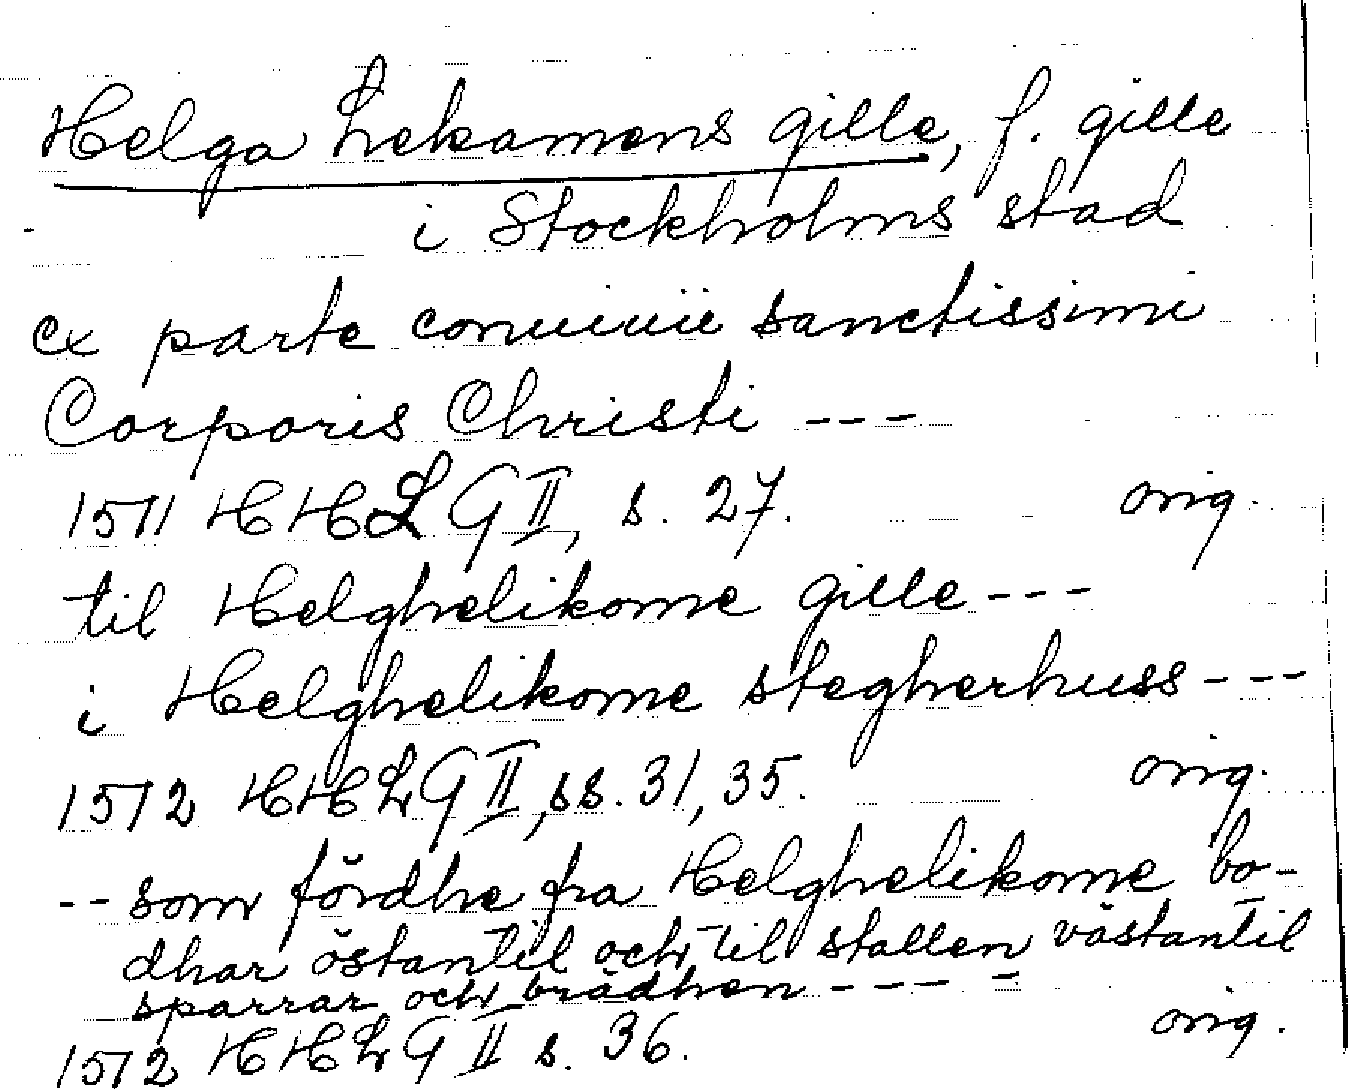 Helga Lekamens gille, f. gille
i Stockholms stad
ex parte conuiuii sanctissimi
Corporis Christi ---
1511 HHLG II, s. 27. orig.
til Helghelikome gille ---
i Helghelikome stegherhuss ---
1512 HHLG II, ss. 31, 35. orig.
-- som fördhe fra Helghelikome bo-
dhar östantil och til stallen västantil
sparrar och brädhen ---- -
1512 HHLG II s. 36. orig.